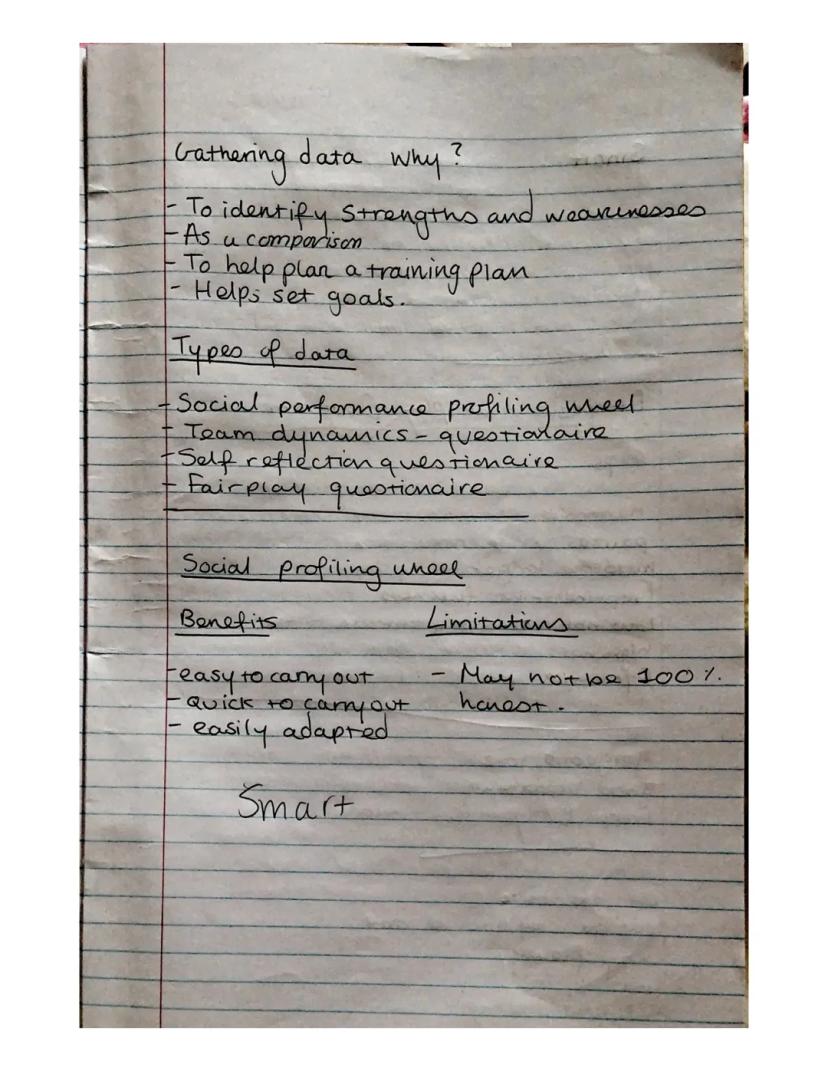 Gathering data why?
- To identify strengths and weaknesses
- As a comparison
- To help plan a training plan
- Helps set goals.
Types of data
- Social performance profiling wheel
- Team dynamics - questionaire
- Self reflection questionaire
- Fairplay questionaire
Social profiling wheel
Benefits Limitations
- easy to carry out - May not be 100%
- quick to carry out honest.
- easily adapted
Smart